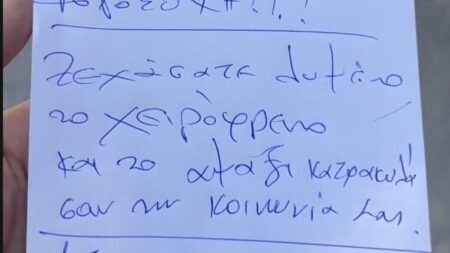 Ξεχάσατε λυμένο
το χειρόφρενο
και το αμάξι κατρακυλά!
σαν την κοινωνία μας.